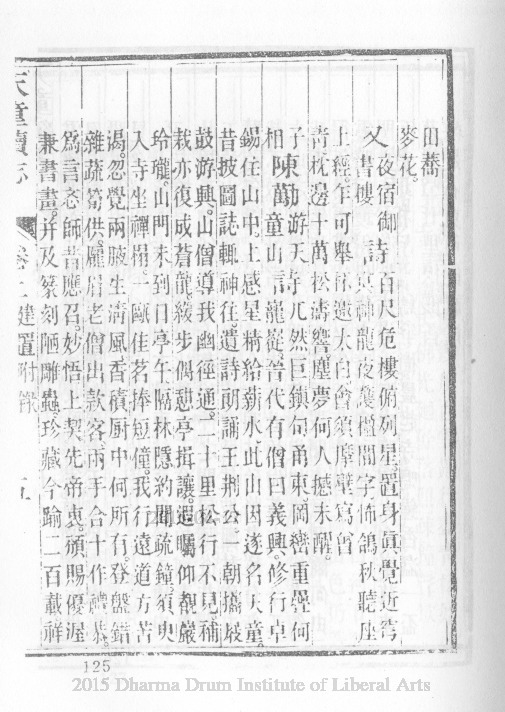 田蕎
麥花。
又夜宿御書樓詩百尺危樓俯列星。置身眞覺近穹
冥。神龍夜襲檻間字。怖鴿秋聽座
上經。乍可舉杯邀太白。會須摩壁寫曾
靑。枕邊十萬松濤響。塵夢何人撼未醒。
子陳勱游天詩兀然巨鎭句甬東。岡巒重疊何
相童山龍嵸。晉代有僧曰義興。修行卓
錫住山中。上感星精給薪水。此山因遂名天童。
昔披圖誌輒神往。遺詩朗誦王荆公。一朝攜屐
鼓游興。山僧導我幽徑通。二十里松行不見。補
栽亦復成蒼龍。緩步偶憩亭揖讓。遐矚仰覩巖
玲瓏。山門未到日亭午。隔林隱約聞疏鐘。須臾
入寺坐禪榻。一甌佳茗捧短僮。我行遠道方苦
渴。忽覺兩腋生淸風。香積厨中何所有。登盤錯
雜蔬筍供。龐眉老僧出款客。兩手合十作禮恭。
爲言忞師昔應召。妙悟上契先帝衷。頒賜優渥
兼書畫。并及篆刻陋雕蟲。珍藏今踰二百載。祥
天童續志 卷上建置附錄 五
125
2015 Dharma Drum Institute of Liberal Arts